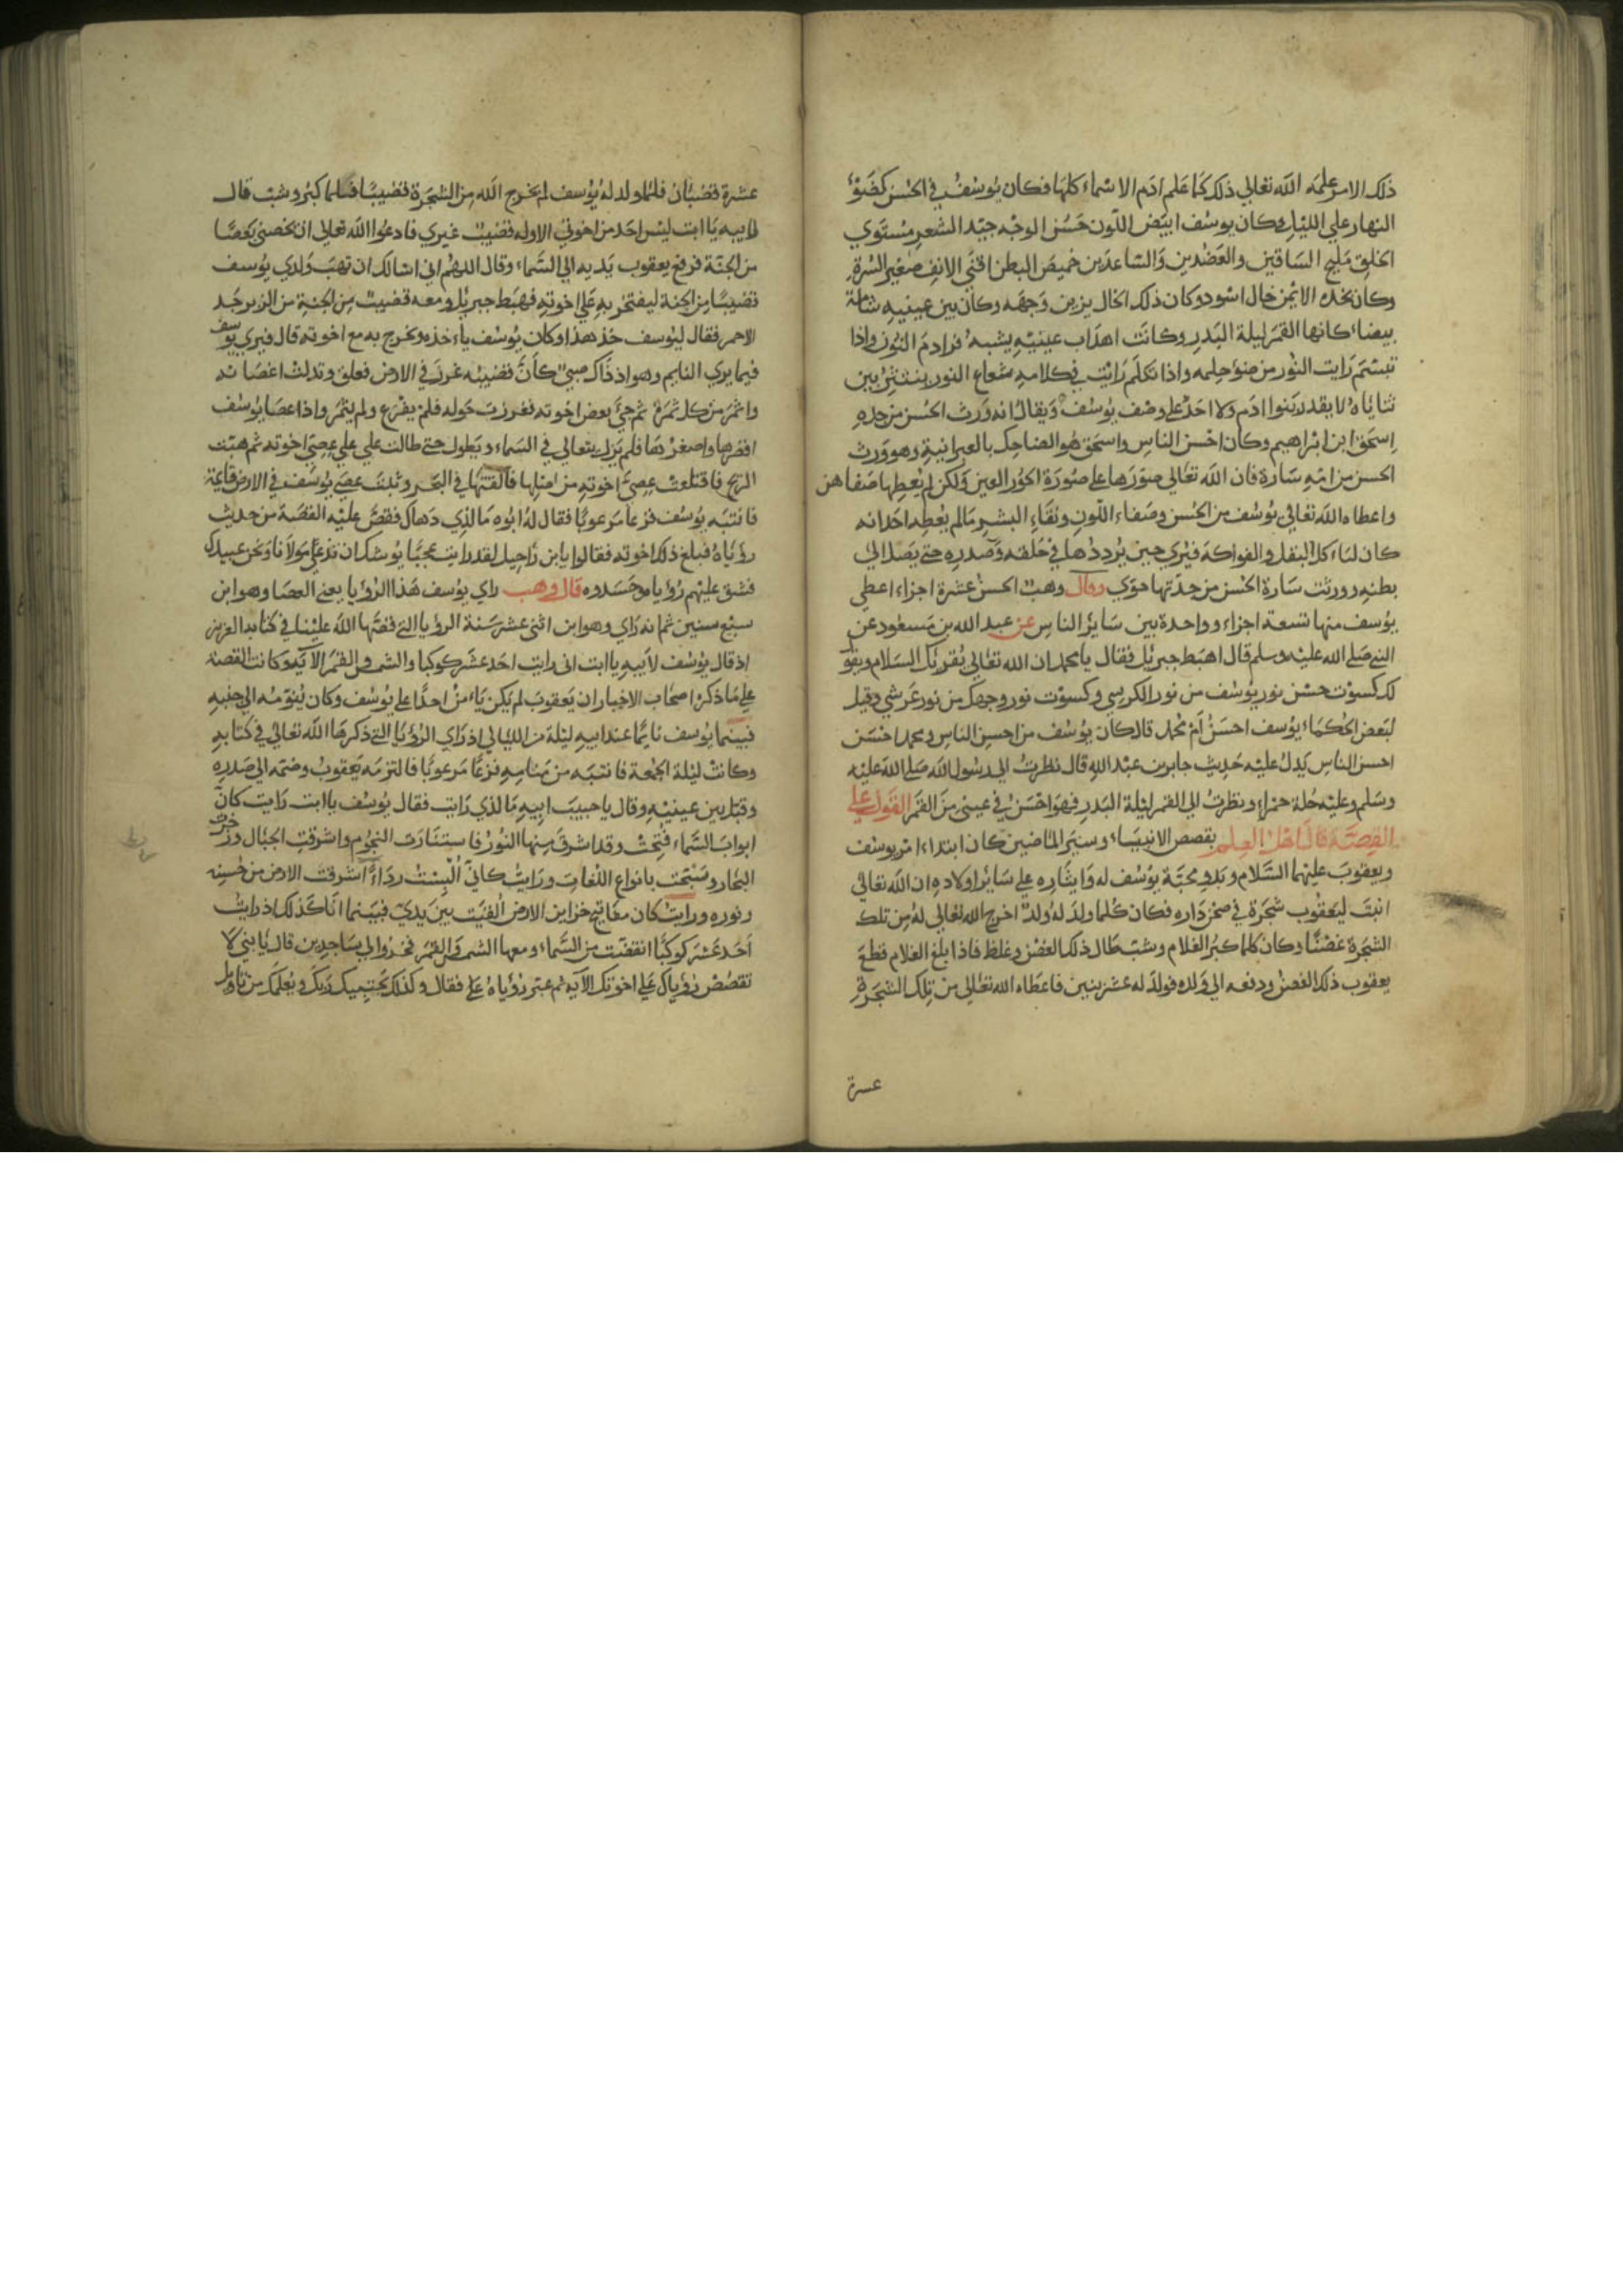 ذلك الامر علمه الله تعالي ذلك كما علم ادم الاسماء كلها فكان يوسف في الحسن كضوء
النهار علي الليل وكان يوسف ابيض اللون حسن الوجه جيد الشعر مستوي
الخلق مليح الساقين والعضدين والساعدين خميص البطن اقنى الانف صغير السرة
وكان بخده الايمن خال اسود وكان ذلك الخال يزين وجهه وكان بين عينيه شامة
بيضاء كانها القمر ليلة البدر وكانت اهداب عينيه يشبه قوادم النون واذا
تبسم رايت النور من ضواحكه واذا تكلم رايت في كلامه شعاع النور ينتثر بين
ثناياه لا يقدر بنوا ادم ولا احد علي وصف يوسف ويقال انه ورث الحسن من جده
اسحق ابن ابراهيم وكان احسن الناس واسحق هو الضاحك بالعبرانية وهو ورث
الحسن من امه سارة فان الله تعالي صورها علي صورة الحور العين ولكن لم يعطها صفاهن
واعطاه الله تعالي يوسف من الحسن وصفاء اللون ونقاء البشر مالم يعطه احد انه
كان لماء كل البقل والفواكه فيري حين يرددها في حلقه وصدره حتي يصل الي
بطنه وورثت سارة الحسن من جدتها حوي وقال وهب الحسن عشرة اجزاء اعطي
يوسف منها تسعة اجزاء وواحدة بين ساير الناس عن عبد الله بن مسعود عن
النبي صلي الله عليه وسلم قال اهبط جبريل فقال يا محمد ان الله تعالي يقرئك السلام ويقو
لك كسوت حسن نور يوسف من نور الكرسي وكسوت نور وجهك من نور عرشي وقيل
لبعض الحكماء يوسف احسن ام محمد قال كان يوسف من احسن الناس ومحمد احسن
احسن الناس يدل عليه حديث جابر بن عبد الله قال نظرت الي رسول الله صلي الله عليه
وسلم وعليه حلة حمراء ونظرت الي القمر ليلة البدر فهو احسن في عيني من القمر القول علي
القصة قال اهل العلم بقصص الانبياء وسير الماضين كان ابتداء امر يوسف
ويعقوب عليهما السلام وبدو محبة يوسف له وايثاره علي ساير اولاده ان الله تعالي
انبت ليعقوب شجرة في صحن داره فكان كلما ولد له ولد اخرج الله تعالي له من تلك
الشجرة غصنا وكان كلما كبر الغلام وشب طال ذلك الغصن وغلظ فاذا بلغ الغلام قطع
يعقوب ذلك الغصن ودفعه الي ولده فولد له عشر بنين فاعطاه الله تعالي من تلك الشجرة
عسرة
عشرة قضبان فلما ولد له يوسف لم يخرج الله من الشجرة قضيبا فلما كبر وشب قال
لابيه يا ابت ليس احد من اخوتي الا وله قضيب غيري فادعوا الله تعالي ان يخصني بعصا
من الجنة فرفع يعقوب يديه الي السماء وقال اللهم اني اسالك ان تهب ولدي يوسف
قضيبا من الجنة ليفتخر به علي اخوته فهبط جبريل ومعه قضيب من الجنة من الزبرجد
الاحمر فقال ليوسف خذ هذا وكان يوسف ياخذه ويخرج به مع اخوته قال فيري يوسف
فيما يري النايم وهو اذ ذاك صبي كان قضيبه غرز في الارض فعلق وتدلت اغصانه
واثمر من كل ثمرة ثم جي بعض اخوته فغرزت حوله فلم يفرع ولم يثمر واذا عصا يوسف
اقصرها واصغرها فلم يزل يتعالي في السماء ويطول حتي طالت علي علي عصي اخوته ثم هبت
الريح فاقتلعت عصي اخوته من اصلها فالقتها في البحر وثبت عصي يوسف في الارض قايمة
فانتبه يوسف فزعا مرعوبا فقال له ابوه ما الذي دهاك فقص عليه القصة من حديث
رؤياه فبلغ ذلك اخوته فقالوا يا ابن راحيل لقد رايت عجبا يوشك ان تدعي مولانا ونحن عبيدك
فشق عليهم رؤياه وحسدوه قال وهب راي يوسف هذا الرؤيا يعني العصا وهو ابن
سبع سنين ثم انه راي وهو ابن اثني عشر سنة الرؤيا التي قصها الله علينا في كتابه العزيز
اذ قال يوسف لابيه يا ابت اني رايت احد عشر كوكبا والشمس والقمر الاية وكانت القصة
علي ما ذكره اصحاب الاخبار ان يعقوب لم يكن يامن احدا علي يوسف وكان ينومه الي جنبه
فبينما يوسف نايما عند ابيه ليلة من الليالي اذ راي الرؤيا التي ذكرها الله تعالي في كتابه
وكانت ليلة الجمعة فانتبه من منامه فزعا مرعوبا فالتزمه يعقوب وضمه الي صدره
وقبل بين عينيه وقال يا حبيب ابيه ما الذي رايت فقال يوسف يا ابت رايت كان
ابواب السماء فتحت وقد اشرق منها النور فاستنارت النجوم واشرقت الجبال وزخرت
البحار وسبحت بانواع اللغات ورايت كاني البست رداء اشرقت الارض من حسنه
ونوره ورايت كان مفاتيح خزاين الارض القيت بين يدي فبينما انا كذلك اذ رايت
احد عشر كوكبا انقضت من السماء ومعها الشمس والقمر فخروا لي ساجدين قال يا بني لا
تقصص رؤياك علي اخوتك الاية ثم عبر رؤياه علي فقال وكذلك يجتبيك ربك ويعلمك من تاويل